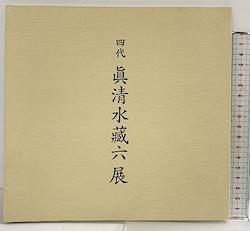 四代
眞清水藏六展